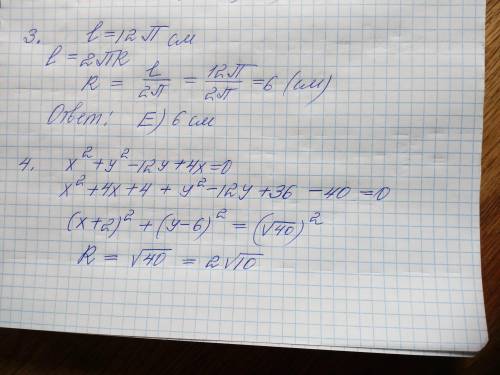 3. l = 12π см
l = 2πR
R = l/2π = 12π/2π = 6 (см)
Ответ: E) 6 см
4. x² + y² - 12y + 4x = 0
x² + 4x + 4 + y² - 12y + 36 - 40 = 0
(x+2)² + (y-6)² = (√40)²
R = √40 = 2√10